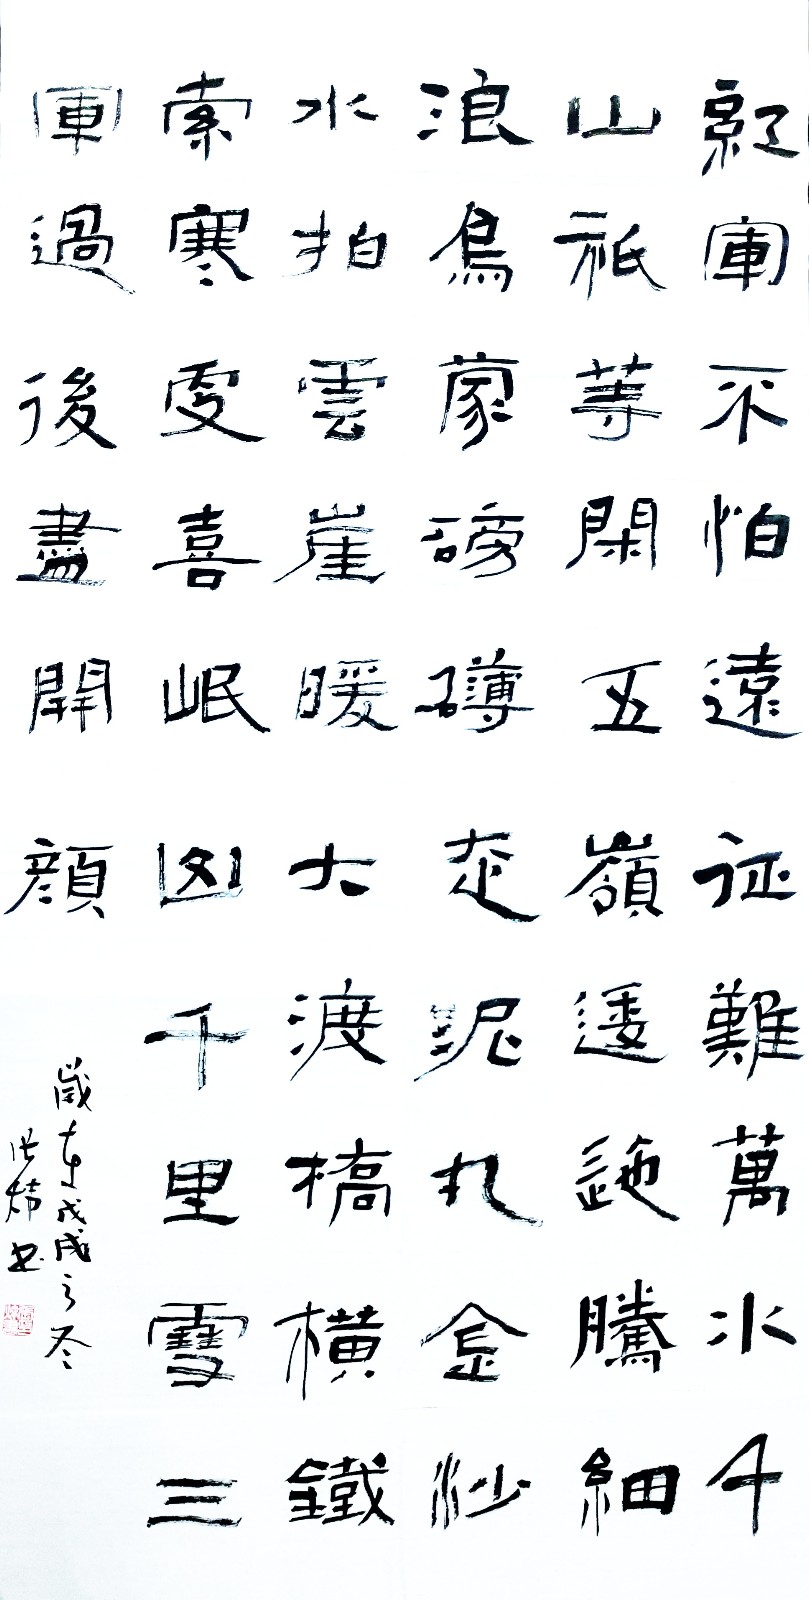 紅軍不怕遠征難萬水千
山祇等閑五嶺逶迤騰細
浪烏蒙磅礴走泥丸金沙
水拍雲崖暖大渡橋橫鐵
索寒更喜岷山千里雪三
軍過後盡開顏
歲在戊戌之冬
书